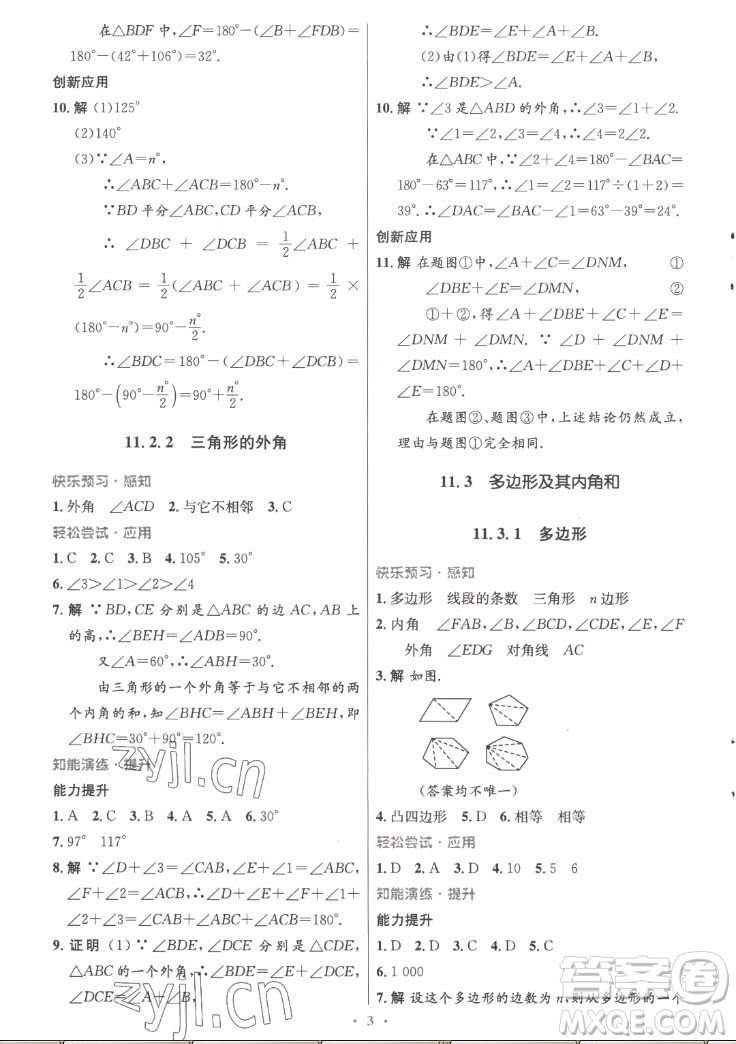 在△BDF中,∠F=180°-(∠B+∠FDB)=
180°-(42°+106°)=32°.
创新应用
10.解 (1)125°
(2)140°
(3)∵∠A=n°,
∴∠ABC+∠ACB=180°-n°.
∵BD平分∠ABC,CD平分∠ACB,
∴∠DBC+∠DCB=1/2∠ABC+
1/2∠ACB=1/2(∠ABC+∠ACB)=1/2×
(180°-n°)=90°-n°/2.
∴∠BDC=180°-(∠DBC+∠DCB)=
180°-(90°-n°/2)=90°+n°/2.
11.2.2 三角形的外角
快乐预习·感知
1.外角 ∠ACD 2.与它不相邻 3.C
轻松尝试·应用
1.C 2.C 3.B 4.105° 5.130°
6.∠3>∠1>∠2>∠4
7.解 ∵BD,CE分别是△ABC的边AC,AB上
的高,∴∠BEH=∠ADB=90°.
又∠A=60°,∴∠ABH=30°.
由三角形的一个外角等于与它不相邻的两
个内角的和,知∠BHC=∠ABH+∠BEH,即
∠BHC=30°+90°=120°.
知能演练·提升
能力提升
1.A 2.C 3.B 4.B 5.A 6.30°
7.97° 117°
8.解 ∵∠D+∠3=∠CAB,∠E+∠1=∠ABC,
∠F+∠2=∠ACB,∴∠D+∠E+∠F+∠1+
∠2+∠3=∠CAB+∠ABC+∠ACB=180°.
9.证明 (1)∵∠BDE,∠DCE分别是△CDE,
△ABC的一个外角,∴∠BDE=∠E+∠DCE,
∠DCE=∠A+∠B,
∴∠BDE=∠E+∠A+∠B.
(2)由(1)得∠BDE=∠E+∠A+∠B,
∴∠BDE>∠A.
10.解 ∵∠3是△ABD的外角,∴∠3=∠1+∠2.
∵∠1=∠2,∠3=∠4,∴∠4=2∠2.
在△ABC中,∠2+∠4=180°-∠BAC=
180°-63°=117°,∴∠1=∠2=117°÷(1+2)=
39°.∴∠DAC=∠BAC-∠1=63°-39°=24°.
创新应用
11.解 在题图①中,∠A+∠C=∠DNM, ①
∠DBE+∠E=∠DMN, ②
①+②,得∠A+∠DBE+∠C+∠E=
∠DNM+∠DMN.∵∠D+∠DNM+
∠DMN=180°,∴∠A+∠DBE+∠C+∠D+
∠E=180°.
在题图②、题图③中,上述结论仍然成立,
理由与题图①完全相同.
11.3 多边形及其内角和
11.3.1 多边形
快乐预习·感知
1.多边形 线段的条数 三角形 n边形
2.内角 ∠FAB,∠B,∠BCD,∠CDE,∠E,∠F
外角 ∠EDG 对角线 AC
3.解 如图.
(答案均不唯一)
4.凸四边形 5.D 6.相等 相等
轻松尝试·应用
1.D 2.A 3.D 4.10 5.5 6
知能演练·提升
能力提升
1.D 2.A 3.C 4.C 5.D
6.1 000
7.解 设这个多边形的边数为n,则从多边形的一个
·3·
zyjl.cn
zyjl.cn
答案圈
MXQE.COM